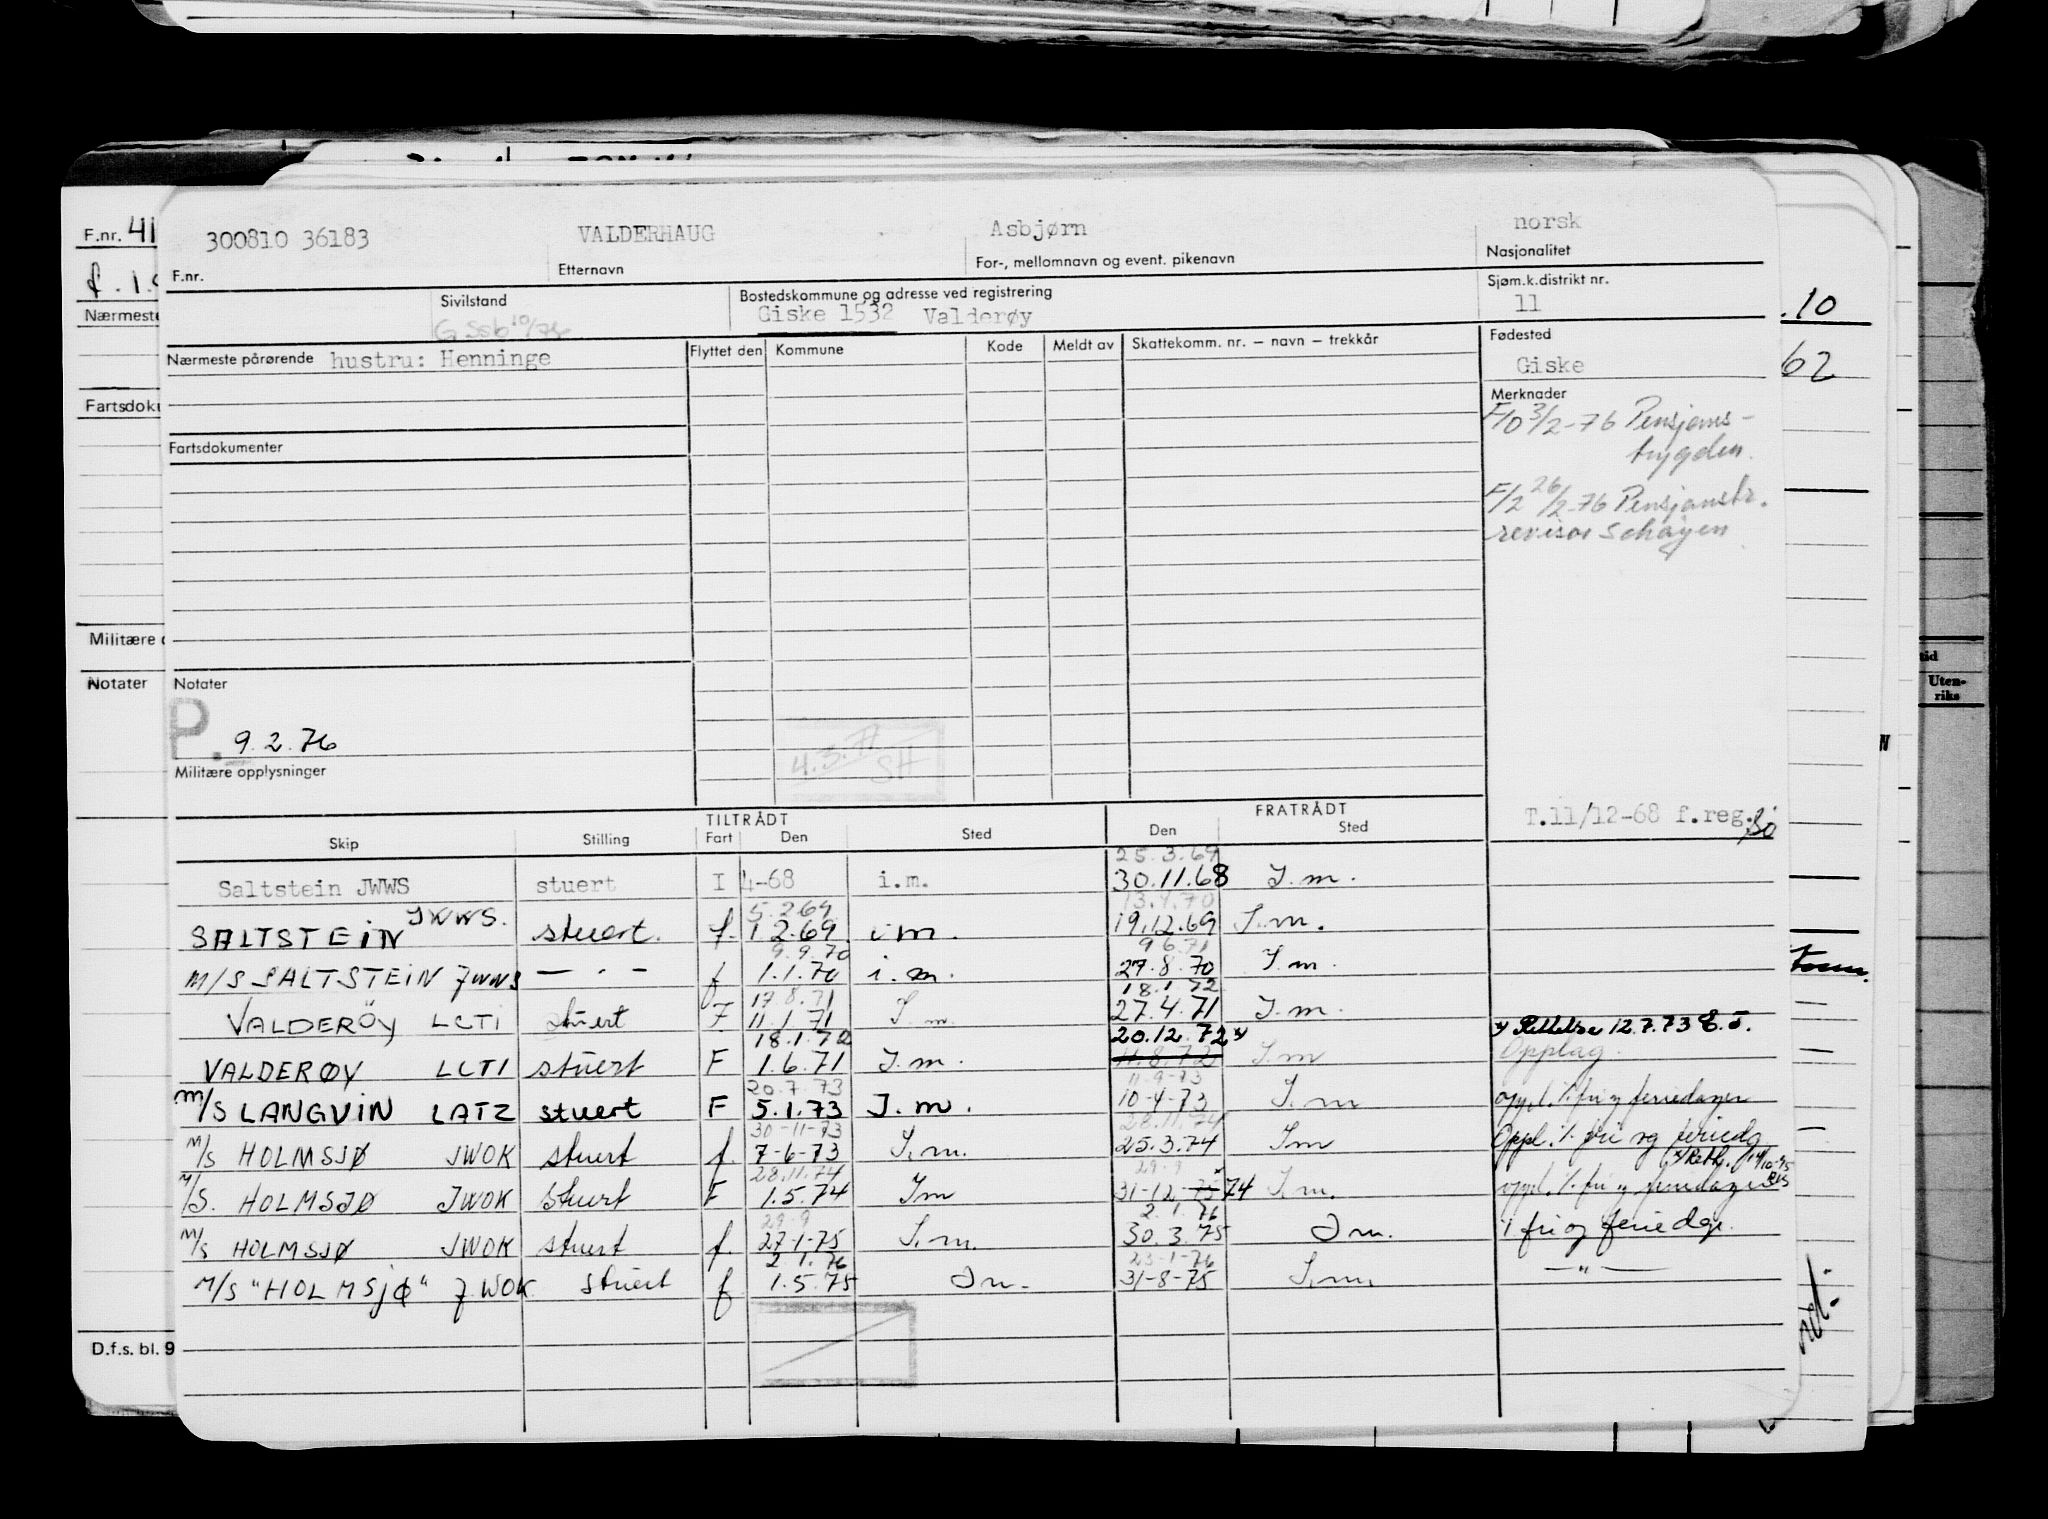 F.nr. 41
300810 36183 VALDERHAUG Asbjørn norsk
F.nr. Etternavn For-, mellomnavn og event. pikenavn Nasjonalitet
Sivilstand Bostedskommune og adresse ved registrering Sjøm.k.distrikt nr.
Giske 1532 Valderøy 11
.10
Nærmeste
Nærmeste pårørende hustru: Henninge Flyttet den Kommune Kode Meldt av Skattekomm. nr. – navn – trekkår Fødested
Giske
62
Merknader
F/0 3/2-76 Pensjons-
trygden.
Fartsdoku
Fartsdokumenter
F/2 26/2-76 Pensjonstr.
revisor Schøyen
Militære o
Notater
Notater
P. 9.2.76
4.3.71
SH
Militære opplysninger
Uten-
riks
T.11/12-68 f.reg.
TILTRÅDT FRATRÅDT
Skip Stilling Fart Den Sted Den Sted
25.3.69
Saltstein JWWS stuert I 4-68 i.m. 30.11.68 I.m.
5.2.69 13.4.70
SALTSTEIN JWWS. stuert. f. 1 2.69. i m. 19.12.69 I.m.
9.9.70 9 6.71
M/S SALTSTEIN JWWS — . — f 1.1.70 i.m. 27.8.70 I.m.
17.8.71 18.1.72
VALDERÖY LCTI stuert F 11.1.71 I.m. 27.4.71 I.m.
18.1.72 20.12.72 x) x) Rettelse 12.7.73 E.J.
VALDERØY LCTI stuert F 1.6.71 I.m. 11.8.72 I.m Opplag.
20.7.73 11-9-73
M/S LANGVIN LATZ stuert F 5.1.73 I.m. 10-4-73 I.m oppl. i. fri og feriedager
30-11-73 28.11.74
M/S HOLMSJØ JWOK stuert f. 7-6-73 I.m. 25.3.74 Im Oppl. i. fri og feriedg
28.11.74 29-9 x) Rett. 14/10-75
M/S. HOLMSJØ JWOK stuert F 1.5.74 Im 31-12-75 74 I.m. oppl. i. fri og feriedager
29-9 2.1.76
M/S HOLMSJØ JWOK stuert f. 27-1-75 I.m. 30.3.75 Im. i fri og feriedgr.
2.1.76 23-1-76
M/S "HOLMSJØ" JWOK stuert f 1.5.75 Im. 31-8-75 I.m. —"—
D.f.s. bl. 9